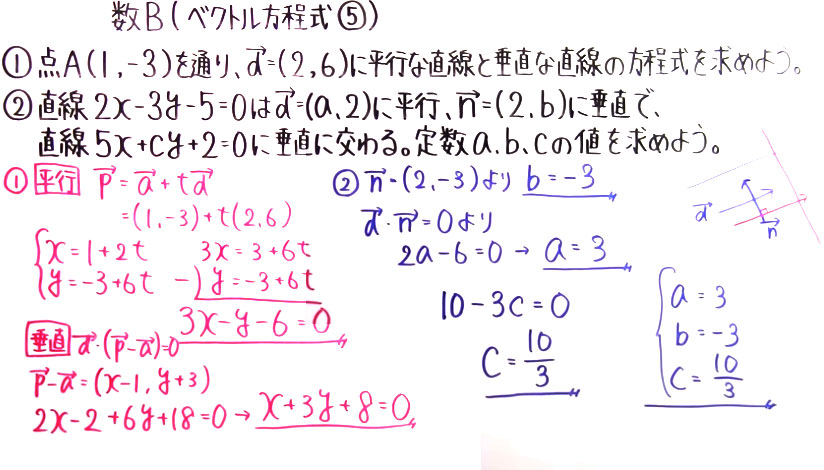 数B(ベクトル方程式⑤)
①点A(1,-3)を通り、d→=(2,6)に平行な直線と垂直な直線の方程式を求めよう。
②直線2x-3y-5=0はd→=(a,2)に平行、n→=(2,b)に垂直で、
直線5x+cy+2=0に垂直に交わる。定数a.b.cの値を求めよう。
①平行 p→=a→+td→
=(1,-3)+t(2,6)
{x=1+2t
y=-3+6t
3x=3+6t
-)y=-3+6t
3x-y-6=0
垂直 d→·(p→-a→)=0
p→-a→=(x-1,y+3)
2x-2+6y+18=0→x+3y+8=0
②n→=(2,-3)より b=-3
d→·n→=0より
2a-6=0→a=3
10-3c=0
c=10/3
d→
n→
{a=3
b=-3
c=10/3